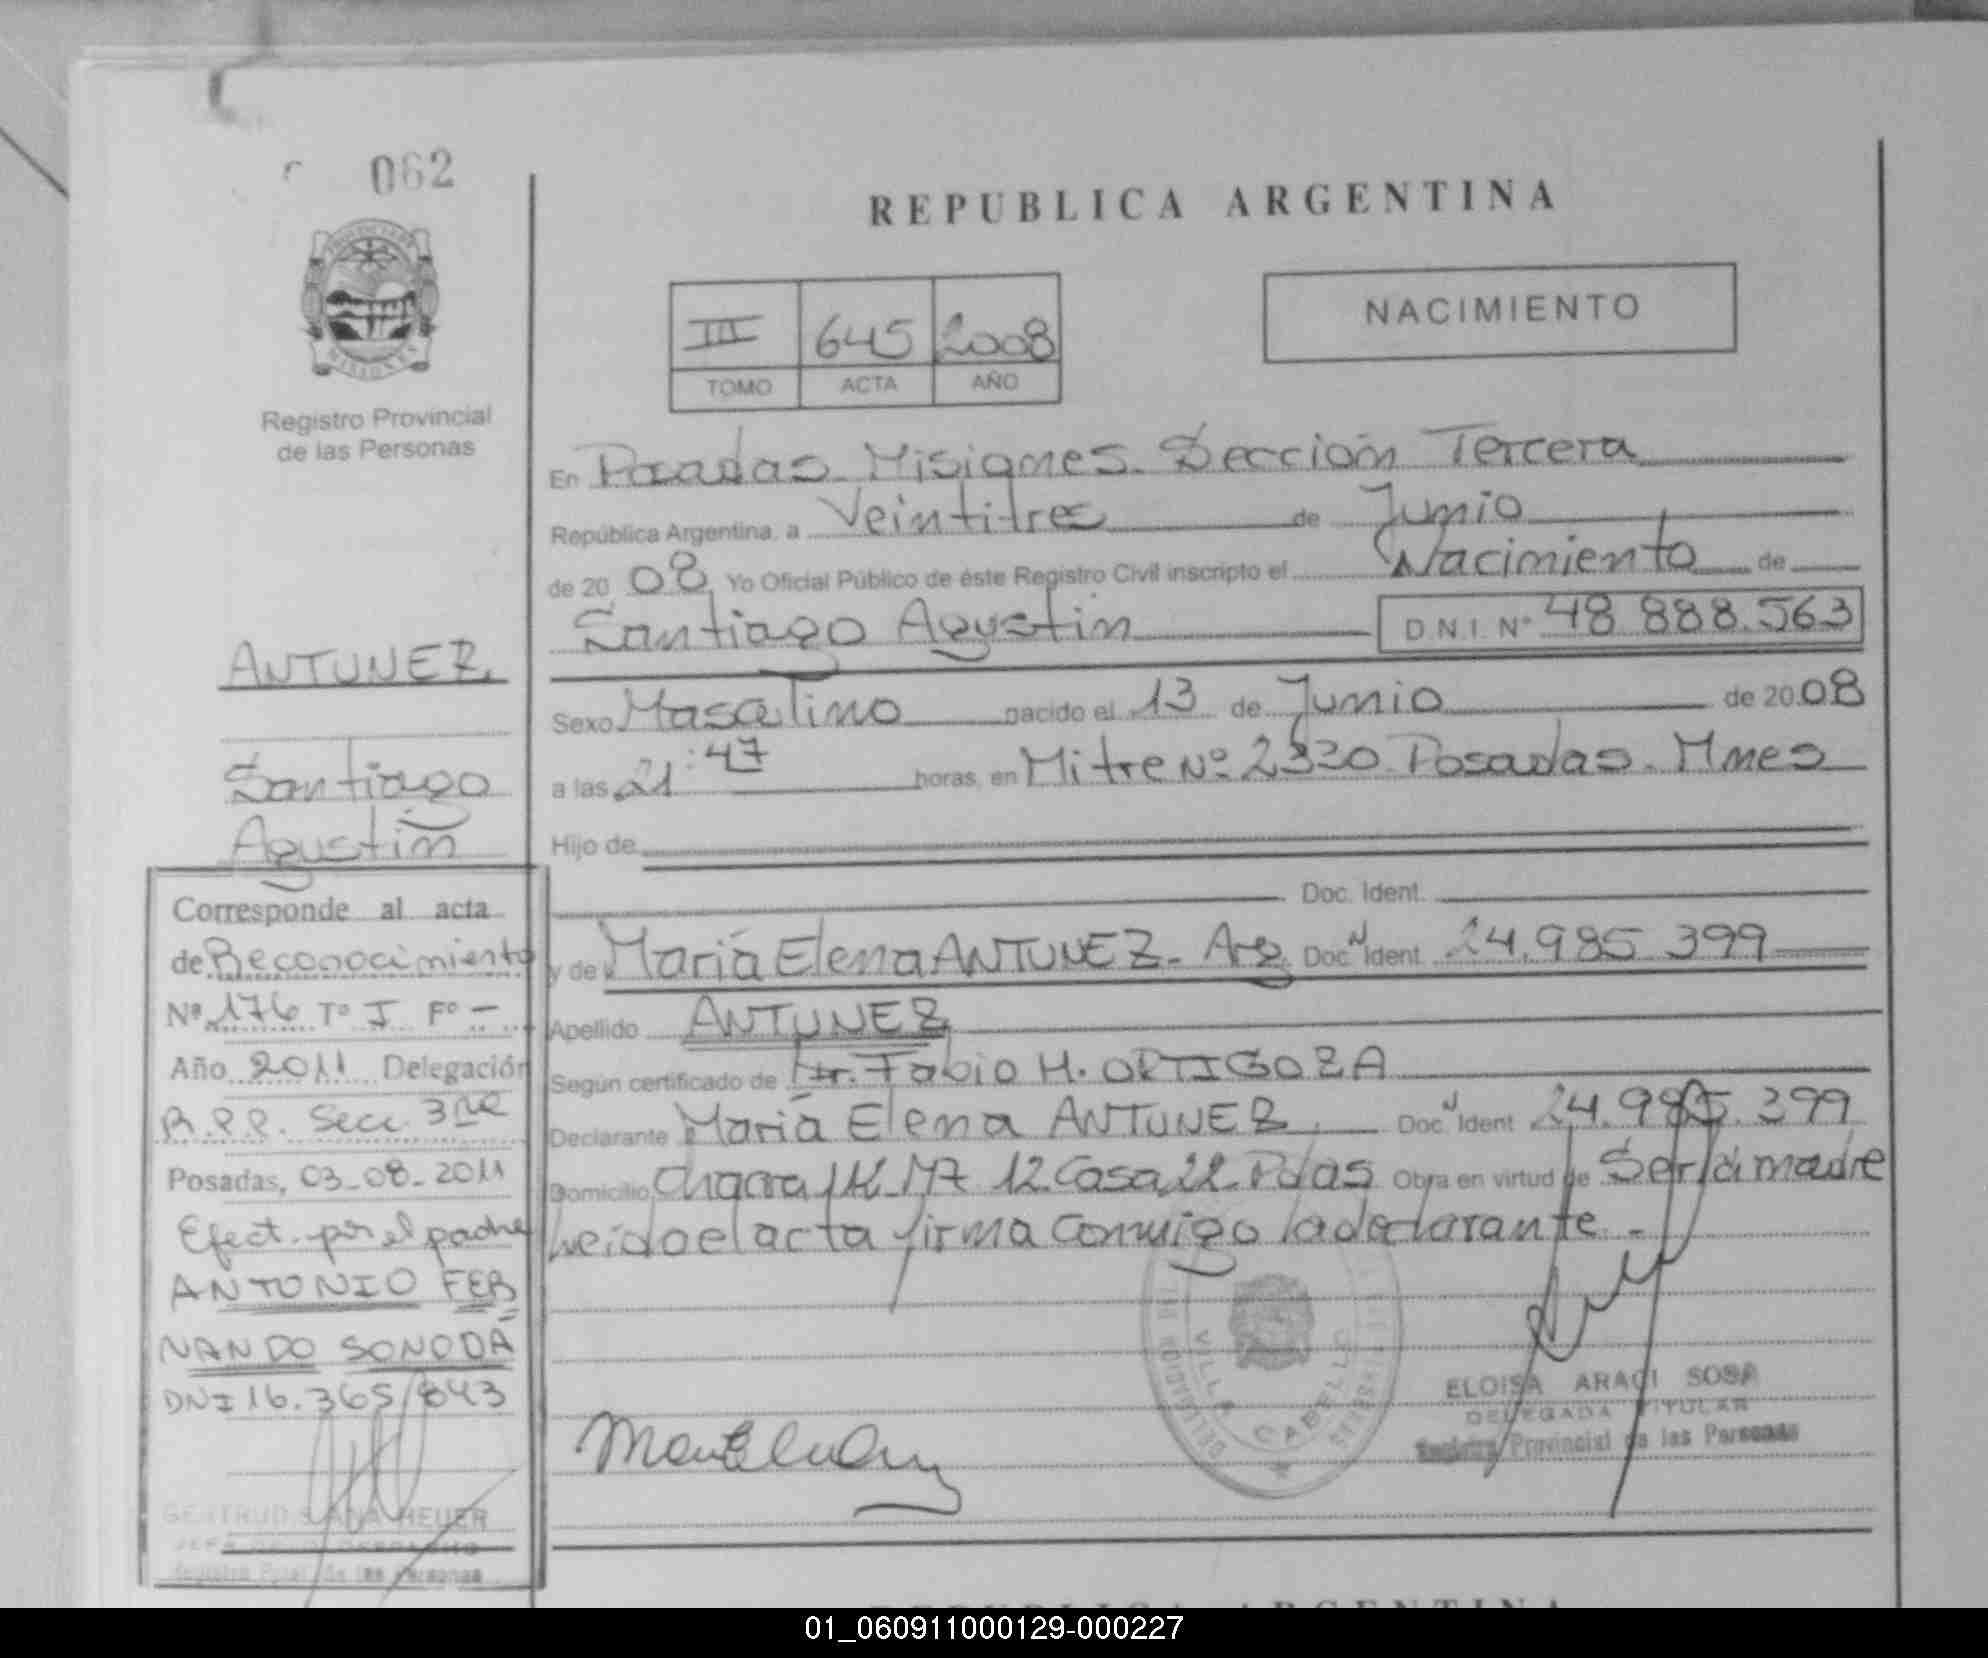 062
REPUBLICA ARGENTINA
NACIMIENTO
III 645 2008
TOMO ACTA AÑO
Registro Provincial
de las Personas
En Posadas Misiones. Sección Tercera
República Argentina, a Veintitres de Junio
de 20 08 Yo Oficial Público de éste Registro Civil inscripto el Nacimiento de
Santiago Agustin D.N.I. Nº 48 888.563
Sexo Masculino nacido el 13 de Junio de 20 08
a las 21:47 horas, en Mitre Nº 2330 Posadas. Mnes
Hijo de
Doc. Ident.
y de María Elena ANTUNEZ - Arg. Doc. N Ident. 24.985 399
Apellido ANTUNEZ
Según certificado de Dr. Fabio H. ORTIGOZA
Declarante María Elena ANTUNEZ Doc. N Ident 24.985.399
Domicilio Chacra Mz 12 Casa 22 Pdas Obra en virtud de Ser la madre
Leído el acta firma conmigo la declarante -
ANTUNEZ
Santiago
Agustin
Corresponde al acta
de Reconocimiento
Nº 176 Tº I Fº -
Año 2011 Delegación
R.P.P. Secc. 3ra
Posadas, 03-08-2011
Efect. por el padre
ANTONIO FER
NANDO SONODA
DNI 16.365 843
ANA HEUER
Registro Provincial de las Personas
VILLA CABELLO
ELOISA ARACI SOSA
DELEGADA TITULAR
Registro Provincial de las Personas
REPUBLICA ARGENTINA
01_060911000129-000227